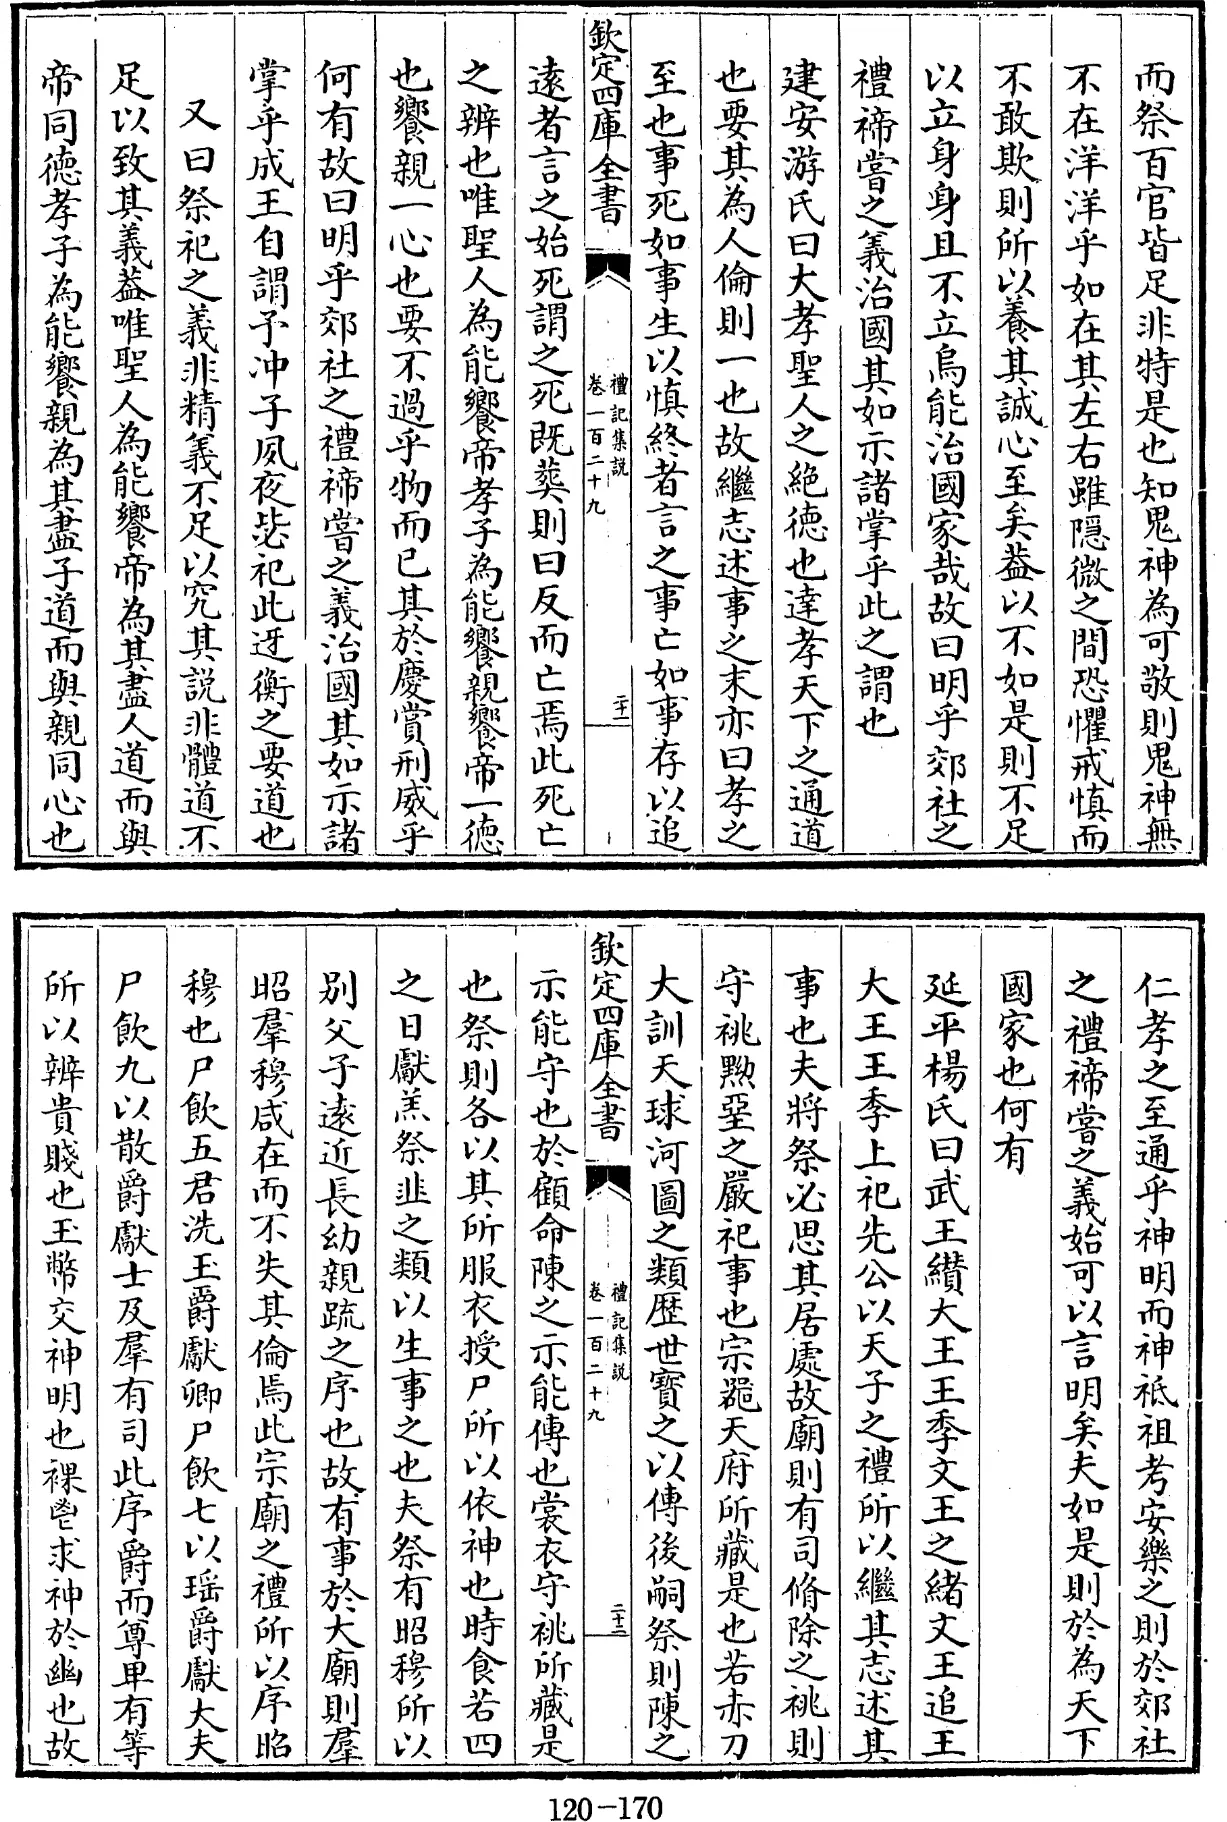 而祭百官皆足非特是也知鬼神為可敬則鬼神無
不在洋洋乎如在其左右雖隠微之間恐懼戒慎而
不敢欺則所以養其誠心至矣葢以不如是則不足
以立身身且不立烏能治國家哉故曰明乎郊社之
禮禘嘗之義治國其如示諸掌乎此之謂也
建安游氏曰大孝聖人之絶德也達孝天下之通道
也要其為人倫則一也故繼志述事之末亦曰孝之
至也事死如事生以慎終者言之事亡如事存以追
欽定四庫全書
禮記集說
卷一百二十九
二十二
遠者言之始死謂之死既葬則曰反而亡焉此死亡
之辨也唯聖人為能饗帝孝子為能饗親饗帝一德
也饗親一心也要不過乎物而已其於慶賞刑威乎
何有故曰明乎郊社之禮禘嘗之義治國其如示諸
掌乎成王自謂予冲子夙夜毖祀此迓衡之要道也
又曰祭祀之義非精義不足以究其説非體道不
足以致其義葢唯聖人為能饗帝為其盡人道而與
帝同德孝子為能饗親為其盡子道而與親同心也
仁孝之至通乎神明而神祗祖考安樂之則於郊社
之禮禘嘗之義始可以言明矣夫如是則於為天下
國家也何有
延平楊氏曰武王纘大王王季文王之緒文王追王
大王王季上祀先公以天子之禮所以繼其志述其
事也夫將祭必思其居處故廟則有司脩除之祧則
守祧黝堊之嚴祀事也宗器天府所藏是也若赤刀
大訓天球河圖之類歴世寶之以傳後嗣祭則陳之
欽定四庫全書
禮記集說
卷一百二十九
二十三
示能守也於顧命陳之示能傳也裳衣守祧所藏是
也祭則各以其所服衣授尸所以依神也時食若四
之日獻羔祭韭之類以生事之也夫祭有昭穆所以
別父子遠近長幼親疏之序也故有事於大廟則羣
昭羣穆咸在而不失其倫焉此宗廟之禮所以序昭
穆也尸飲五君洗玉爵獻卿尸飲七以瑤爵獻大夫
尸飲九以散爵獻士及羣有司此序爵而尊卑有等
所以辨貴賤也玉幣交神明也祼鬯求神於幽也故
120-170